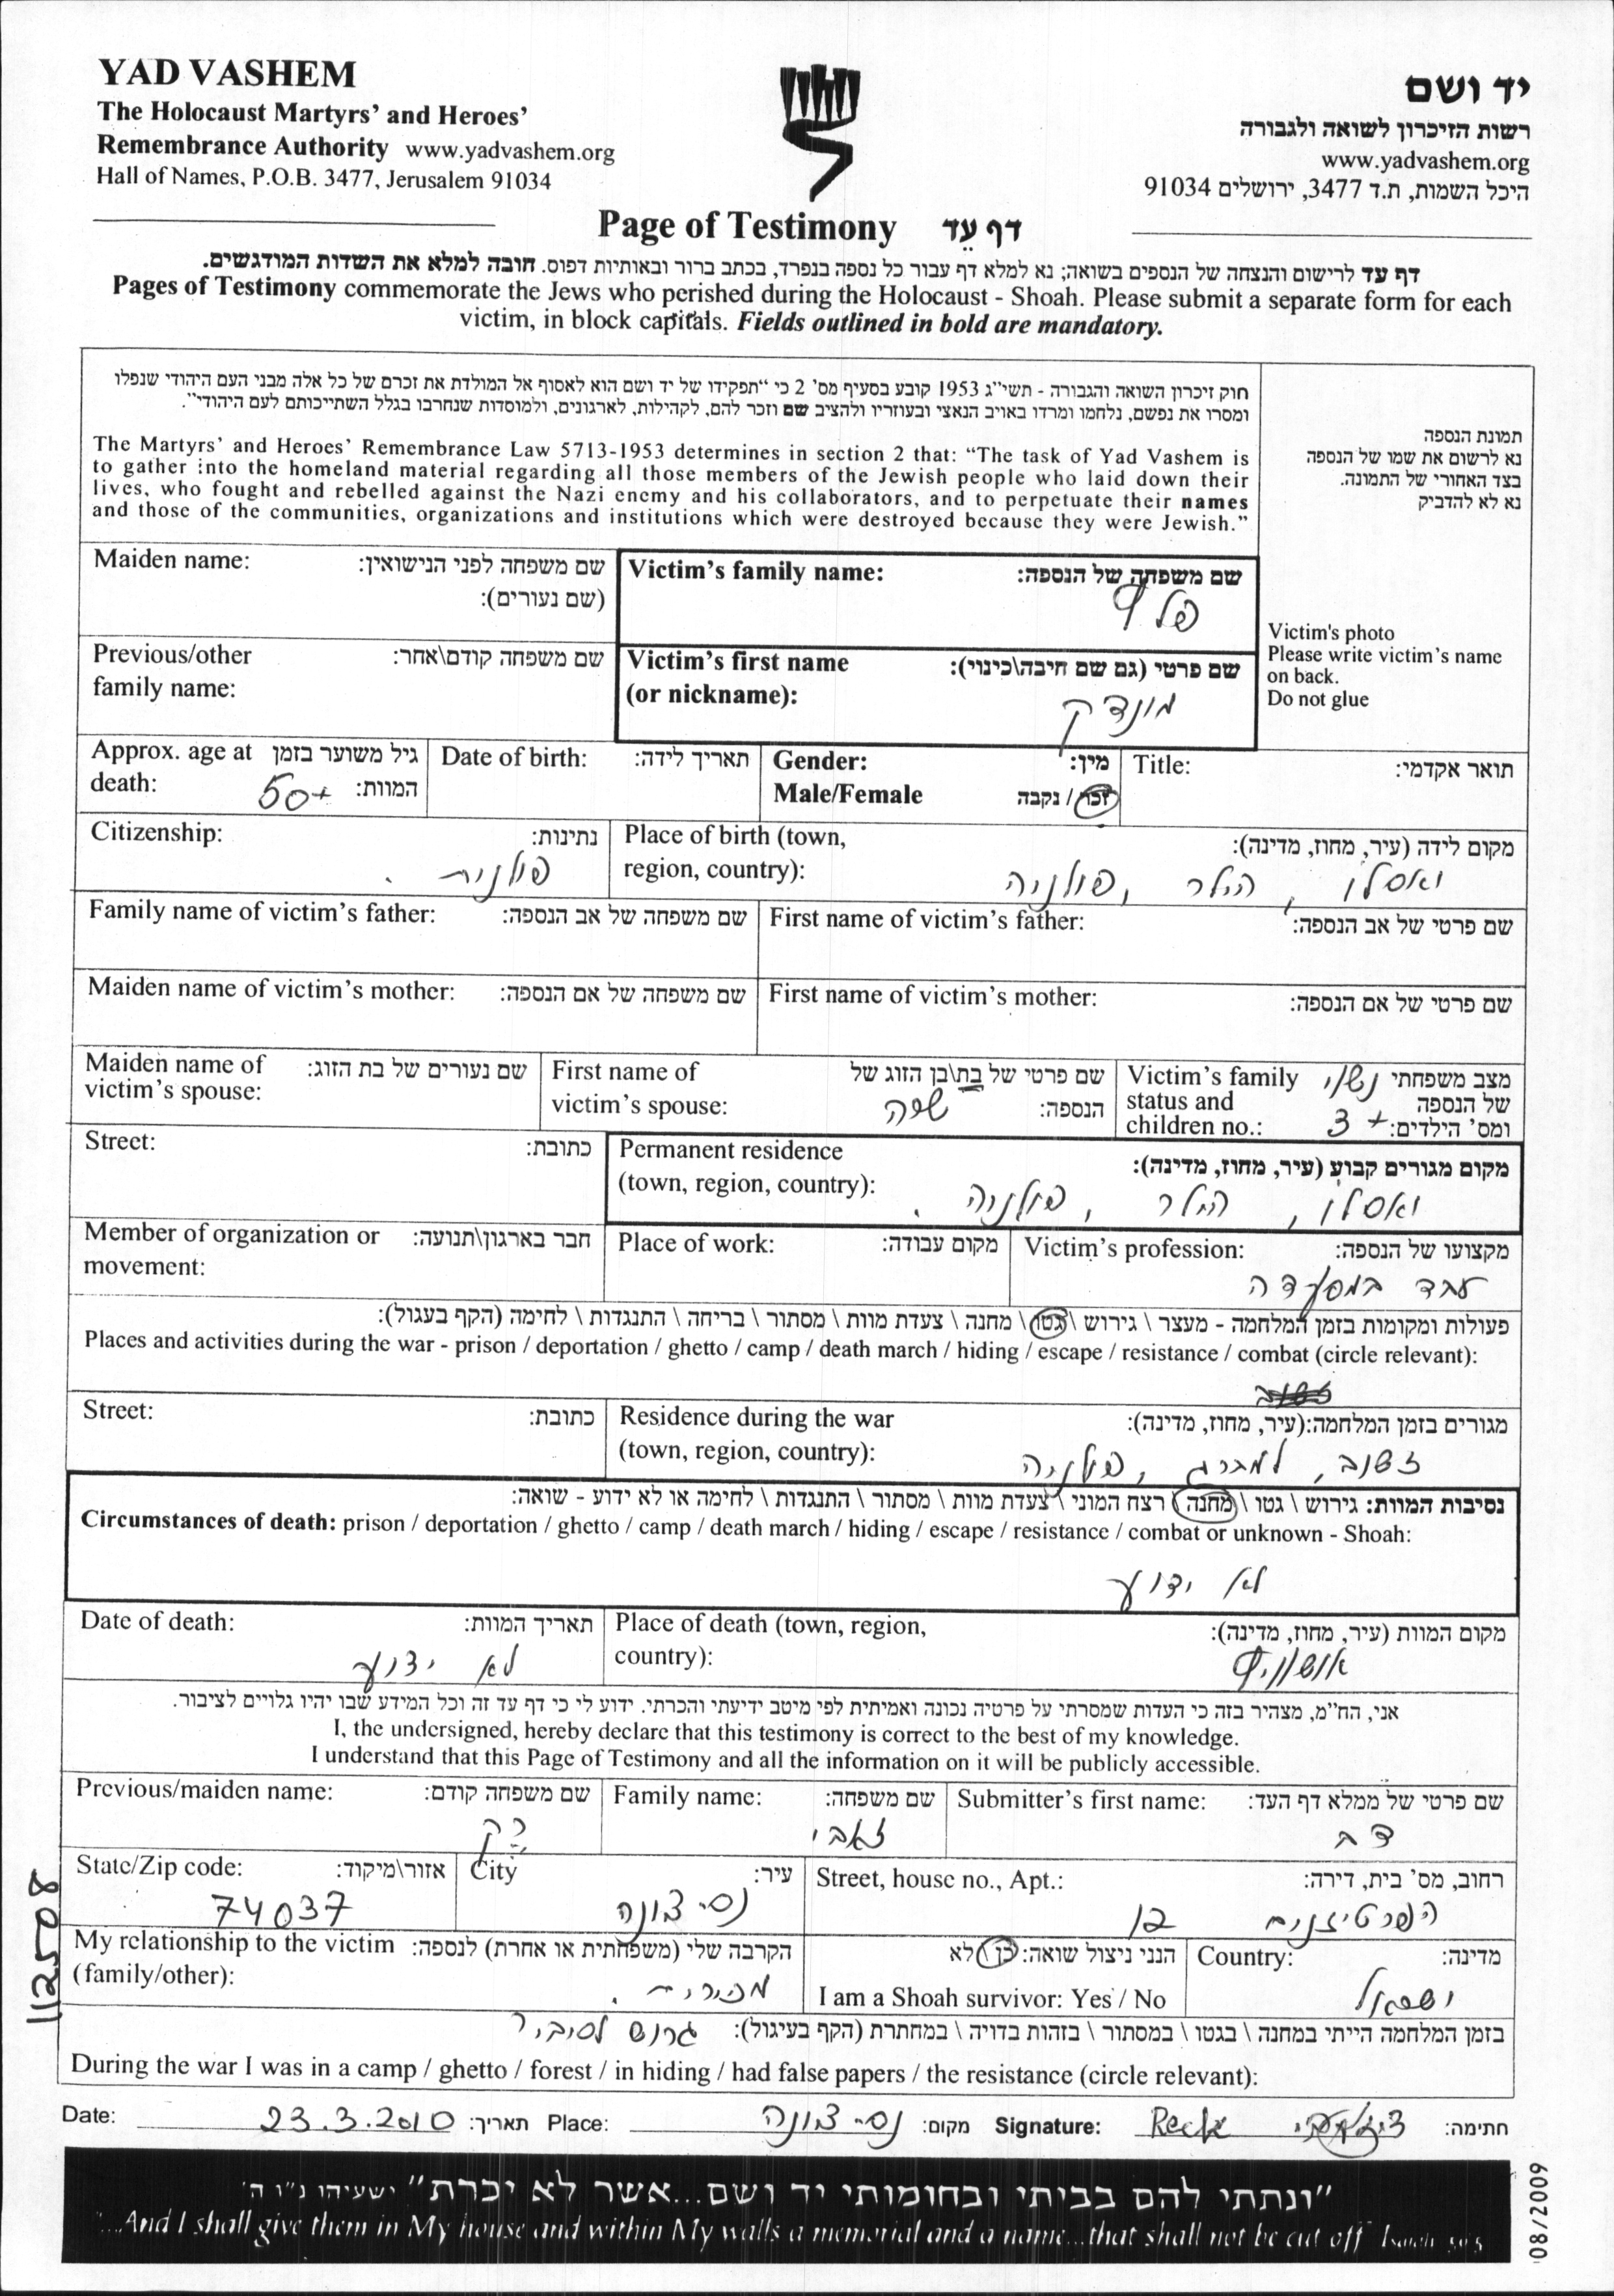 YAD VASHEM
The Holocaust Martyrs' and Heroes'
Remembrance Authority www.yadvashem.org
Hall of Names, P.O.B. 3477, Jerusalem 91034
יד ושם
רשות הזיכרון לשואה ולגבורה
www.yadvashem.org
היכל השמות, ת.ד 3477, ירושלים 91034
Page of Testimony דף עֵד
דף עד לרישום והנצחה של הנספים בשואה; נא למלא דף עבור כל נספה בנפרד, בכתב ברור ובאותיות דפוס. חובה למלא את השדות המודגשים.
Pages of Testimony commemorate the Jews who perished during the Holocaust - Shoah. Please submit a separate form for each
victim, in block capitals. Fields outlined in bold are mandatory.
חוק זיכרון השואה והגבורה - תשי"ג 1953 קובע בסעיף מס' 2 כי "תפקידו של יד ושם הוא לאסוף אל המולדת את זכרם של כל אלה מבני העם היהודי שנפלו
ומסרו את נפשם, נלחמו ומרדו באויב הנאצי ובעוזריו ולהציב שם וזכר להם, לקהילות, לארגונים, ולמוסדות שנחרבו בגלל השתייכותם לעם היהודי".
The Martyrs' and Heroes' Remembrance Law 5713-1953 determines in section 2 that: "The task of Yad Vashem is
to gather into the homeland material regarding all those members of the Jewish people who laid down their
lives, who fought and rebelled against the Nazi enemy and his collaborators, and to perpetuate their names
and those of the communities, organizations and institutions which were destroyed because they were Jewish."
תמונת הנספה
נא לרשום את שמו של הנספה
בצד האחורי של התמונה.
נא לא להדביק
Victim's photo
Please write victim's name
on back.
Do not glue
Maiden name: שם משפחה לפני הנישואין:
(שם נעורים):
Victim's family name: שם משפחה של הנספה:
פלף
Previous/other שם משפחה קודם\אחר:
family name:
Victim's first name שם פרטי (גם שם חיבה\כינוי):
(or nickname):
מונדק
Approx. age at גיל משוער בזמן
death: המוות: 50+
Date of birth: תאריך לידה:
Gender: מין:
Male/Female זכר / נקבה
Title: תואר אקדמי:
Citizenship: נתינות:
פולנית .
Place of birth (town, מקום לידה (עיר, מחוז, מדינה):
region, country): , פולניה
Family name of victim's father: שם משפחה של אב הנספה:
First name of victim's father: שם פרטי של אב הנספה:
Maiden name of victim's mother: שם משפחה של אם הנספה:
First name of victim's mother: שם פרטי של אם הנספה:
Maiden name of שם נעורים של בת הזוג:
victim's spouse:
First name of שם פרטי של בת\בן הזוג של
victim's spouse: הנספה: שפה
Victim's family מצב משפחתי נשוי
status and של הנספה
children no.: ומס' הילדים: + 3
Street: כתובת:
Permanent residence מקום מגורים קבוע (עיר, מחוז, מדינה):
(town, region, country): , פולניה .
Member of organization or חבר בארגון\תנועה:
movement:
Place of work: מקום עבודה:
Victim's profession: מקצועו של הנספה:
עבד במספדה
פעולות ומקומות בזמן המלחמה - מעצר \ גירוש \ גטו \ מחנה \ צעדת מוות \ מסתור \ בריחה \ התנגדות \ לחימה (הקף בעגול):
Places and activities during the war - prison / deportation / ghetto / camp / death march / hiding / escape / resistance / combat (circle relevant):
Street: כתובת:
Residence during the war מגורים בזמן המלחמה:(עיר, מחוז, מדינה):
(town, region, country): זשנב, למברג, פולניה
נסיבות המוות: גירוש \ גטו \ מחנה \ רצח המוני \ צעדת מוות \ מסתור \ התנגדות \ לחימה או לא ידוע - שואה:
Circumstances of death: prison / deportation / ghetto / camp / death march / hiding / escape / resistance / combat or unknown - Shoah:
לא ידוע
Date of death: תאריך המוות:
לא ידוע
Place of death (town, region, מקום המוות (עיר, מחוז, מדינה):
country): אושוויץ
אני, הח"מ, מצהיר בזה כי העדות שמסרתי על פרטיה נכונה ואמיתית לפי מיטב ידיעתי והכרתי. ידוע לי כי דף עד זה וכל המידע שבו יהיו גלויים לציבור.
I, the undersigned, hereby declare that this testimony is correct to the best of my knowledge.
I understand that this Page of Testimony and all the information on it will be publicly accessible.
Previous/maiden name: שם משפחה קודם:
רק
Family name: שם משפחה:
זאבי
Submitter's first name: שם פרטי של ממלא דף העד:
דב
State/Zip code: אזור\מיקוד:
74037
City עיר:
נס-ציונה
Street, house no., Apt.: רחוב, מס' בית, דירה:
הפרטיזנים 12
My relationship to the victim הקרבה שלי (משפחתית או אחרת) לנספה:
(family/other): מכירות .
הנני ניצול שואה: כן \ לא
I am a Shoah survivor: Yes / No
Country: מדינה:
ישראל
בזמן המלחמה הייתי במחנה \ בגטו \ במסתור \ בזהות בדויה \ במחתרת (הקף בעיגול): גרוש לסיביר
During the war I was in a camp / ghetto / forest / in hiding / had false papers / the resistance (circle relevant):
Date: 23.3.2010 תאריך: Place: נס-ציונה מקום: Signature: Reck חתימה:
"ונתתי להם בביתי ובחומותי יד ושם...אשר לא יכרת" ישעיהו נ"ו ה'
"...And I shall give them in My house and within My walls a memorial and a name...that shall not be cut off" Isaiah 56:5
112508
08/2009